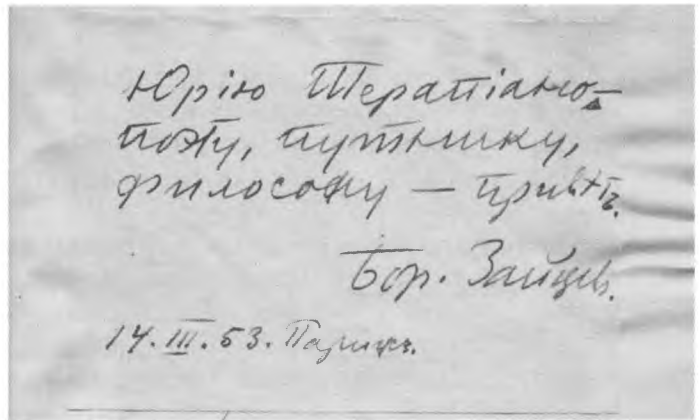 Юрію Терапіано —
поэту, путнику,
философу — привѣтъ.
Бор. Зайцев.
14.III.53. Парижъ.